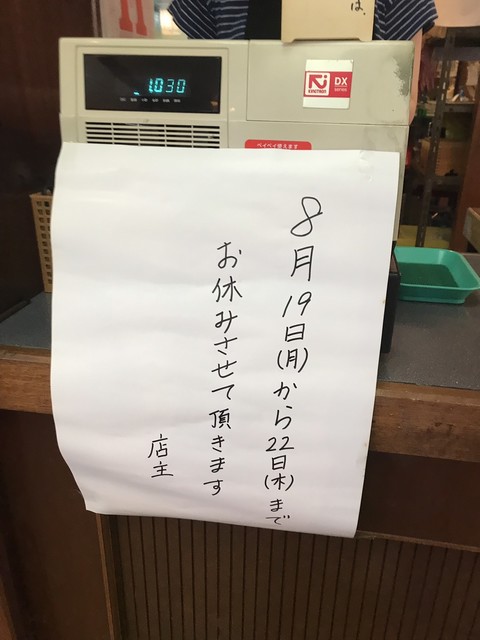 は、
1030
DX
series
ペイペイ使えます
8月19日(月)から22日(木)まで
お休みさせて頂きます
店主